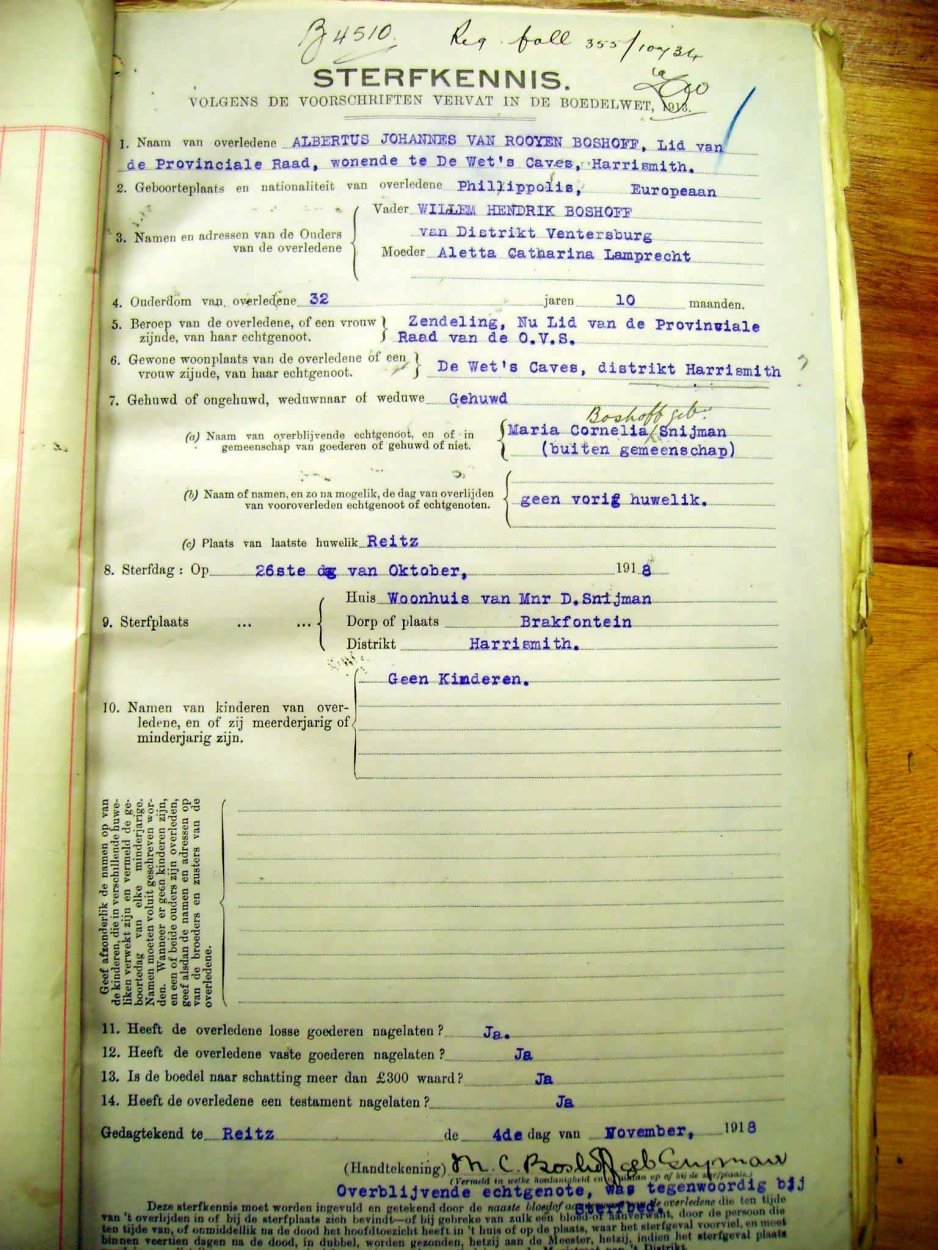 B 4510. Reg. foll 355/10434
STERFKENNIS.
VOLGENS DE VOORSCHRIFTEN VERVAT IN DE BOEDELWET, 1913.
1. Naam van overledene ALBERTUS JOHANNES VAN ROOYEN BOSHOFF, Lid van
de Provinciale Raad, wonende te De Wet's Caves, Harrismith.
2. Geboorteplaats en nationaliteit van overledene Phillippolis, Europeaan
3. Namen en adressen van de Ouders van de overledene
Vader WILLEM HENDRIK BOSHOFF
van Distrikt Ventersburg
Moeder Aletta Catharina Lamprecht
4. Ouderdom van overledene 32 jaren 10 maanden.
5. Beroep van de overledene, of een vrouw Zendeling, Nu Lid van de Provinsiale
zijnde, van haar echtgenoot. Raad van de O.V.S.
6. Gewone woonplaats van de overledene of een
vrouw zijnde, van haar echtgenoot. De Wet's Caves, distrikt Harrismith ?
7. Gehuwd of ongehuwd, weduwnaar of weduwe Gehuwd
Boshoff geb:
(a) Naam van overblijvende echtgenoot, en of in Maria Cornelia Snijman
gemeenschap van goederen of gehuwd of niet. (buiten gemeenschap)
(b) Naam of namen, en zo na mogelik, de dag van overlijden
van vooroverleden echtgenoot of echtgenoten. geen vorig huwelik.
(c) Plaats van laatste huwelik Reitz
8. Sterfdag: Op 26ste dag van Oktober, 1918
9. Sterfplaats ... ...
Huis Woonhuis van Mnr D.Snijman
Dorp of plaats Brakfontein
Distrikt Harrismith.
Geen Kinderen.
10. Namen van kinderen van over-
ledene, en of zij meerderjarig of
minderjarig zijn.
Geef afzonderlik de namen op van
de kinderen, die in verschillende huwe-
liken verwekt zijn en vermeld de ge-
boortedag van elke minderjarige.
Namen moeten voluit geschreven wor-
den. Wanneer er geen kinderen zijn,
en een of beide ouders zijn overleden,
geef alsdan de namen en adressen op
van de broeders en zusters van de
overledene.
11. Heeft de overledene losse goederen nagelaten? Ja.
12. Heeft de overledene vaste goederen nagelaten? Ja
13. Is de boedel naar schatting meer dan £300 waard? Ja
14. Heeft de overledene een testament nagelaten? Ja
Gedagtekend te Reitz de 4de dag van November, 1918
(Handtekening) M. C. Boshoff geb Snyman
(Vermeld in welke hoedanigheid en op of bij de sterfplaats.)
Overblijvende echtgenote, was tegenwoordig bij
sterfbed.
Deze sterfkennis moet worden ingevuld en getekend door de naaste bloed of overledene die ten tijde
van 't overlijden in of bij de sterfplaats zich bevindt—of bij gebreke van zulk een bloed- of aanverwant, door de persoon die
ten tijde van, of onmiddellik na de dood het hoofdtoezicht heeft in 't huis of op de plaats, waar het sterfgeval voorviel, en moet
binnen veertien dagen na de dood, in dubbel, worden gezonden, hetzij aan de Meester, hetzij, indien het sterfgeval plaats